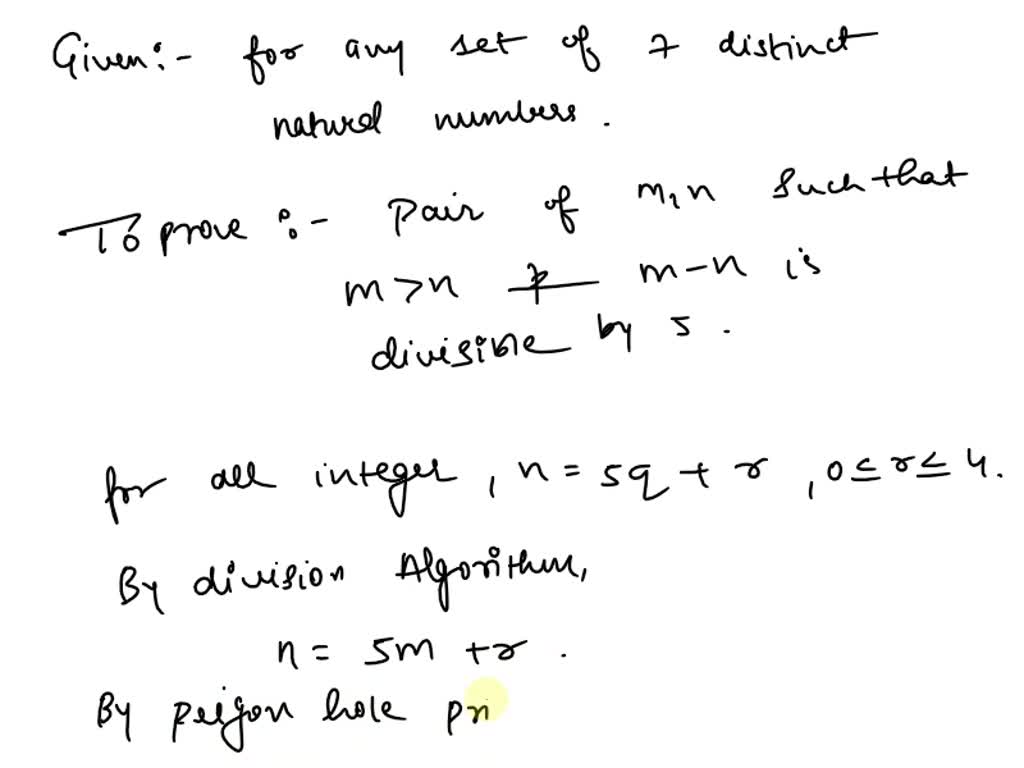 Given:- for any set of 7 distinct
natural numbers.
To prove :- Pair of m, n such that
m > n & m-n is
divisible by 5.
for all integer, n = 5q + r, 0 ≤ r ≤ 4.
By division Algorithm,
n = 5m + r.
By peigon hole pri